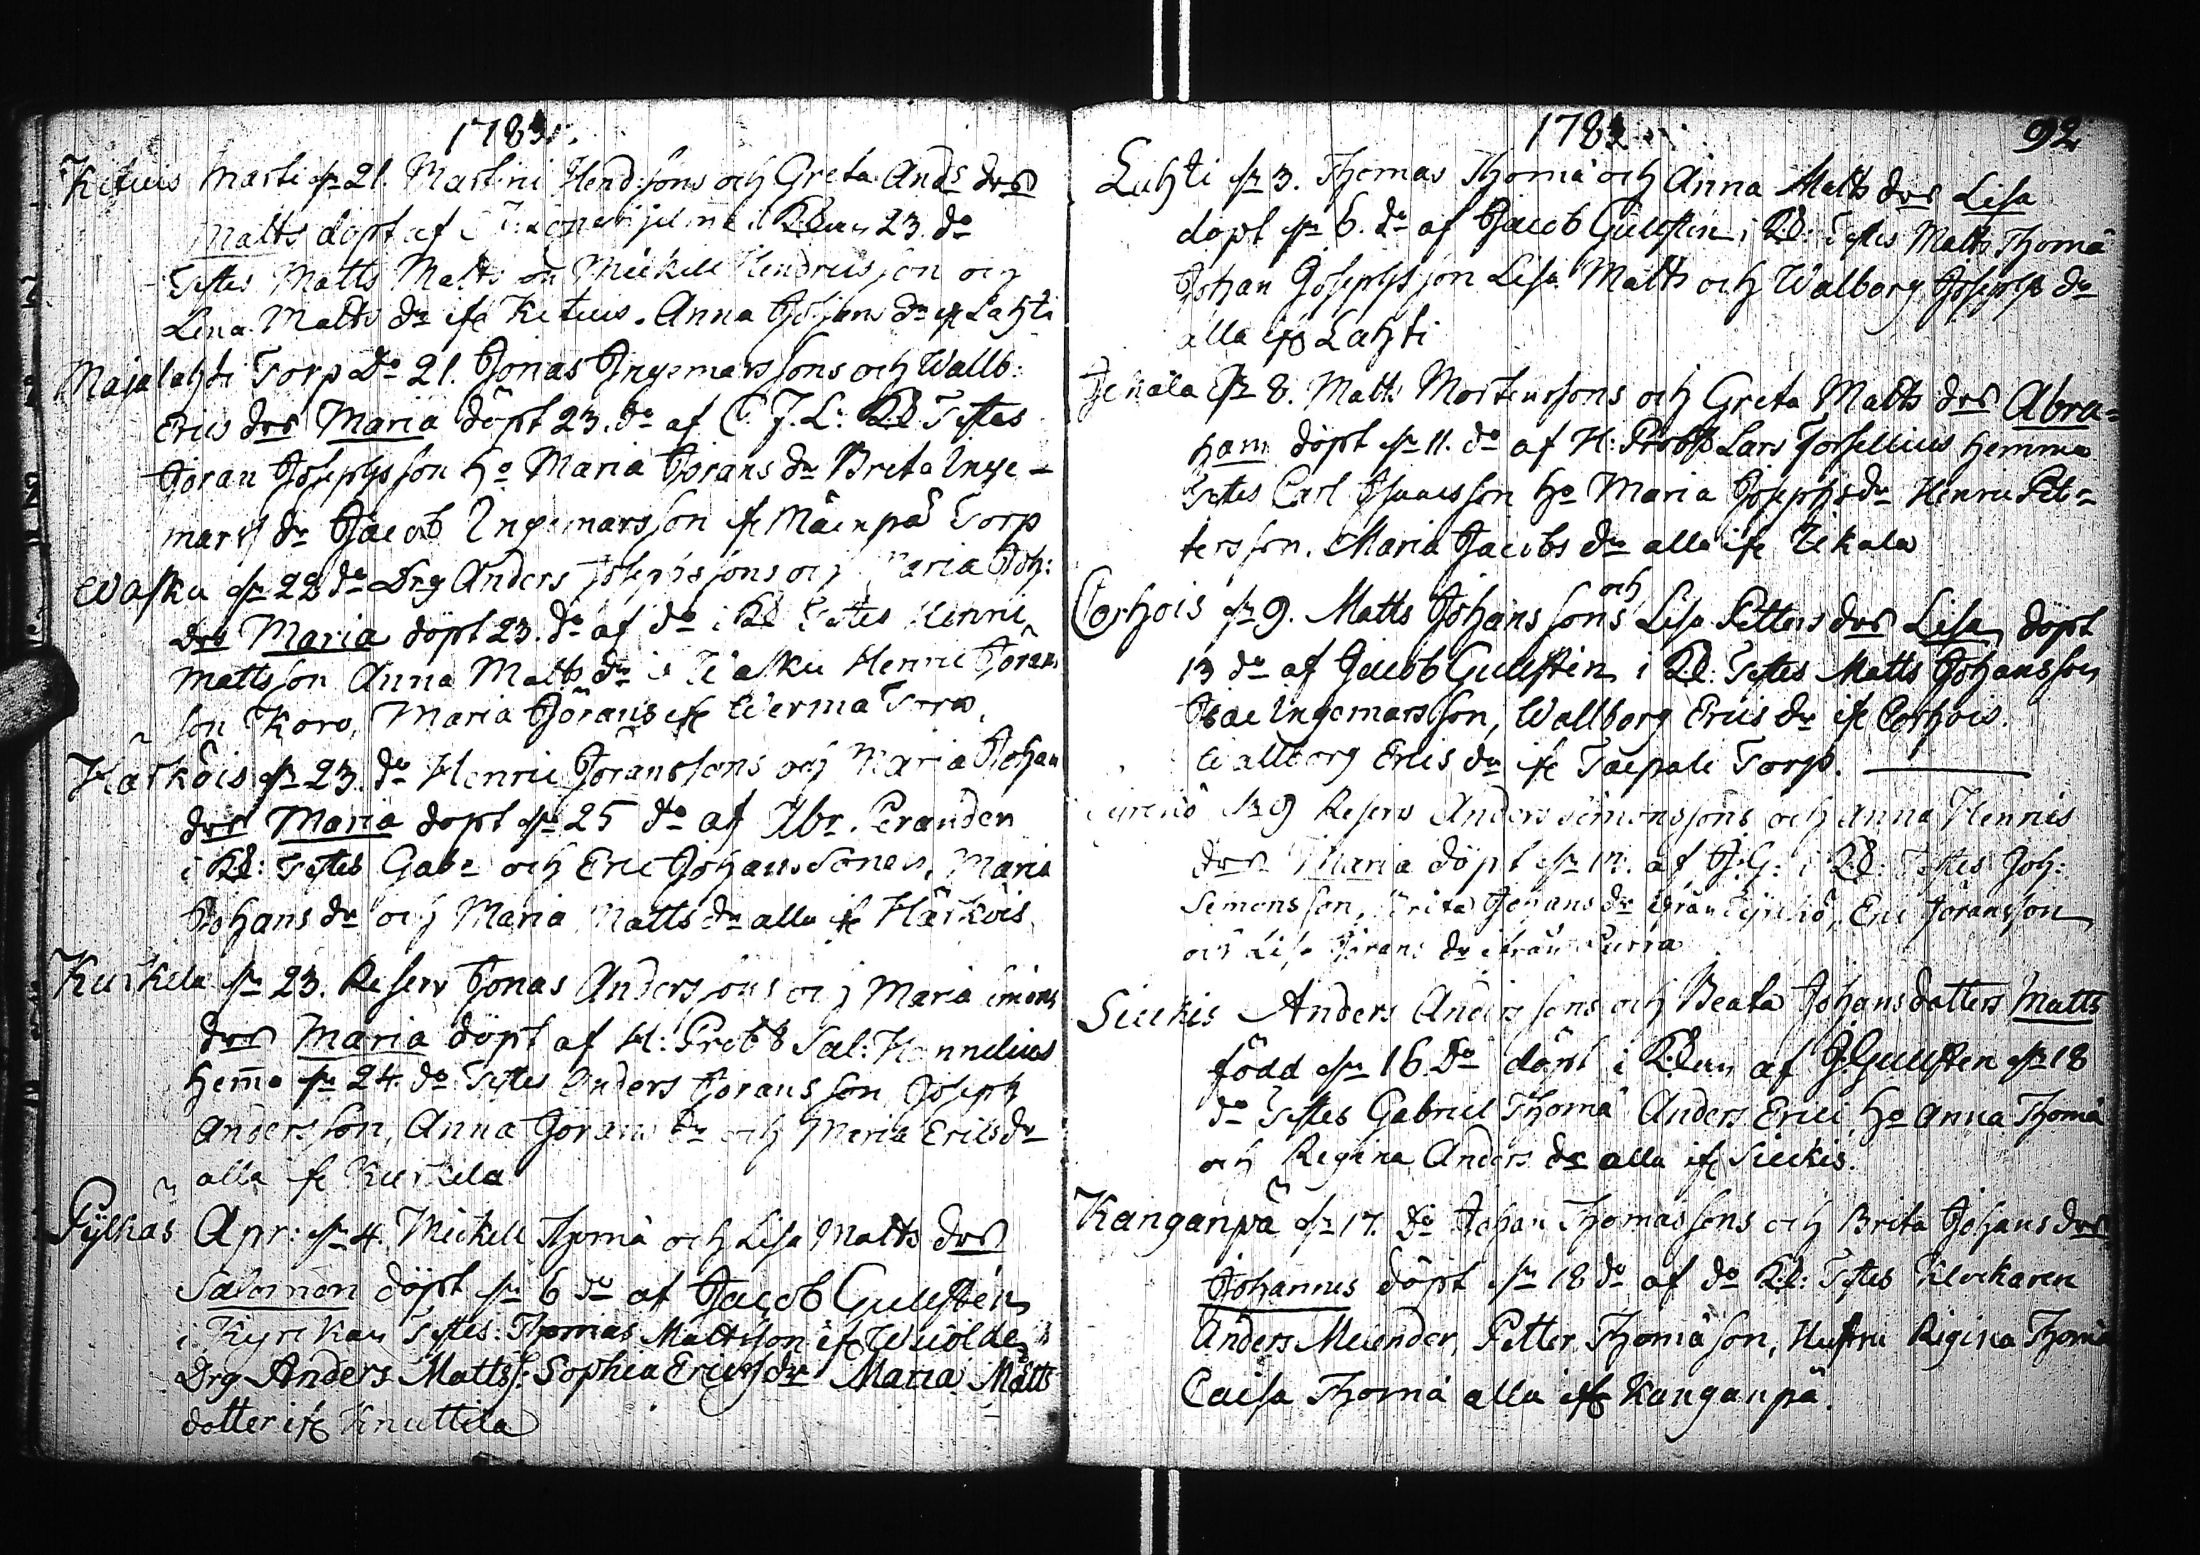 1783.
Ketuis Marti d 21. Martini Hend:sons och Greta Ands drs
Matts döpt af 23. do
Testes Matts Matts Mickell Hendricsson och
Lena Matts dr ifr Ketuis. Anna Johans dr ifr Lahti
Majalahti Torp do 21. Jonas Ingemarssons och Wallb:
Erics drs Maria döpt 23. do af C. J. L: Testes
Jöran Josephsson ho Maria Jörans dr Brita Inge-
mars dr Jacob Ingemarsson ifr Mäenpä Torp
Wasku d 22 do Drg Anders Josephssons och Maria Joh:
drs Maria döpt 23. do af do i Testes Henric
Mattsson Anna Matts dr Wasku Henric Jörans
son Koro, Maria Jörans ifr Werma Torp.
Härköis d 23. do Henric Jöranssons och Maria Johans
drs Maria döpt d 25 do af Abr. Perander
i Kl: Testes Gabr och Eric Johans Söner, Maria
Johans dr och Maria Matts dr alla ifr Härköis
Kurkela d 23. Reserv Jonas Anderssons och Maria Simons
drs Maria döpt af H: Prob Sal: Hannelius
hema d 24. do Testes Anders Göransson Joseph
Andersson, Anna Jörans dr och Maria Erics dr
alla ifr Kurkela
Pylkäs Apr: d 4. Mickell Thomä och Lisa Matts drs
Salomon döpt d 6 do af Jacob Gullsten
i Kyrckan Testes: Thomas Mattsson ifr
Drg Anders Mattss: Sophia Ericsdr Maria Matts
dotter ifr Knuttila
1783. 92
Lahti d 3. Thomas Thomä och Anna Matts drs Lisa
döpt d 6. do af Jacob Gullsten i Kl: Testes Matts Thomä
Johan Josephsson Lisa Matts och Walborg Josephs dr
alla ifr Lahti
d 8. Matts Mortenssons och Greta Matts drs Abra-
ham döpt d 11. do af H: Probst Lars Forsellius hemma
Testes Carl Isaacsson ho Maria Josephs dr Henric Pet-
tersson. Maria Jacobs dr alla ifr
Corhois d 9. Matts Johanssons och Lisa Petters drs Lisa döpt
13 do af Jacob Gullsten i Kl: Testes Matts Johansson
Isac Ingemarsson, Wallborg Erics dr ifr Corhois.
Wallborg Erics dr ifr Taipale Torp.
d 9 Reserv Anders Simonssons och Anna Henrics
drs Maria döpt d af J: G: i Kl: Testes Joh:
Simonsson, Brita Johans dr ifrån Eric Jöransson
och Lisa Jörans dr ifrån Suria
Sieckis Anders Anderssons och Beata Johansdotters Matts
född d 16 do döpt i af J: Gullsten d 18
do Testes Gabriel Thomä Anders Erici ho Anna Thomä
och Regina Anders dr alla ifr Sieckis.
Kanganpä d 17. do Johan Thomassons och Brita Johans drs
Johannes döpt d 18 do af do Kl: Testes Klockaren
Anders Melender, Petter Thomäson, Hustru Regina Thomä
Caisa Thomä alla ifr Kanganpä.